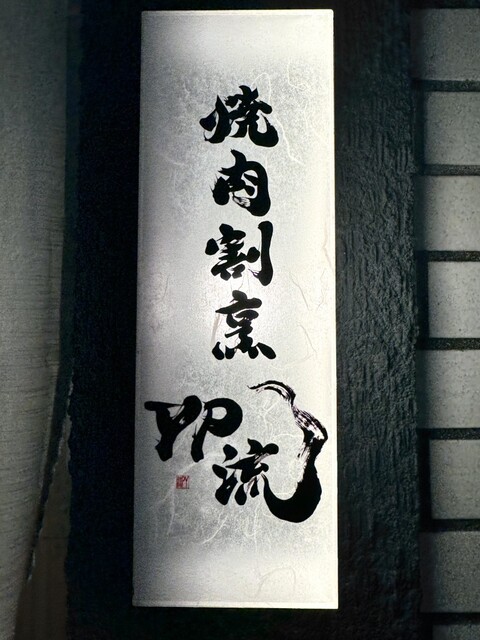 焼肉割烹
流